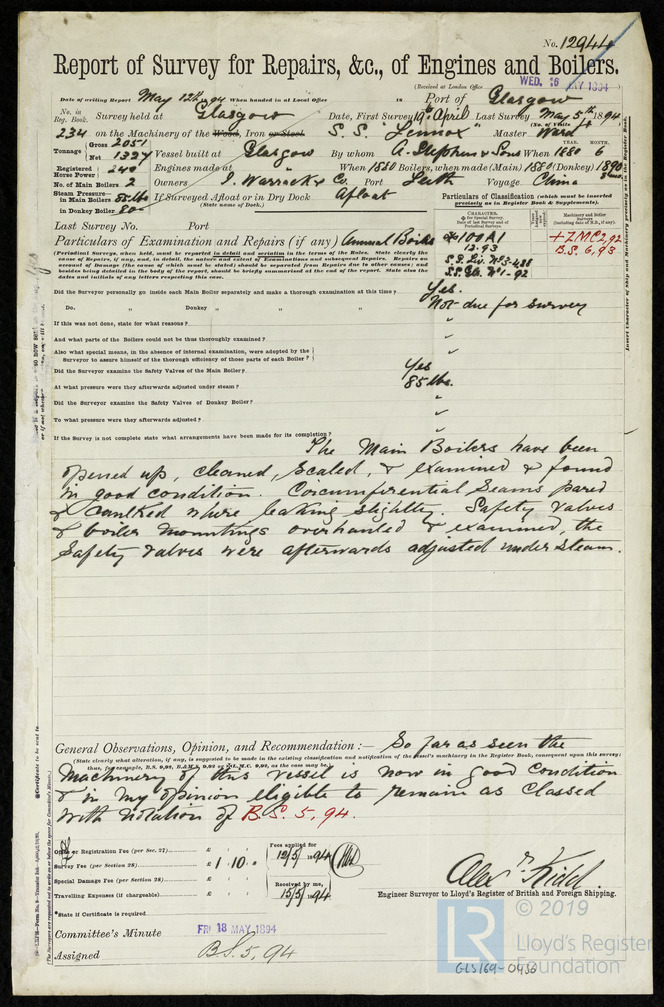 No. 12944
Report of Survey for Repairs, &c., of Engines and Boilers.
(Received at London Office WED. 16 MAY 1894
Date of writing Report May 12th 1894 When handed in at Local Office 18 Port of Glasgow
No. in Reg. Book. Survey held at Glasgow Date, First Survey 19th April Last Survey May 5th 1894
(No. of Visits
234 on the Machinery of the Wood, Iron or Steel S. S. "Lennox" Master Ward
Tonnage Gross 2051 Net 1327 Vessel built at Glasgow By whom A. Stephen & Sons When 1880 6
YEAR. MONTH.
Registered Horse Power 240 Engines made at When 1880 Boilers, when made (Main) 1880 (Donkey) 1890
No. of Main Boilers 2 Owners J. Warrack & Co. Port Leith Voyage China
Steam Pressure in Main Boilers 85 lbs If Surveyed Afloat or in Dry Dock Afloat
(State name of Dock.)
in Donkey Boiler 80
Particulars of Classification (which must be inserted precisely as in Register Book & Supplement).
Last Survey No. Port
Particulars of Examination and Repairs (if any) Annual Boilers
100 A1
12.93
S.S. Liv. No 3-88
S.S. Gls. No 1-92
+ L.M.C 2,92
B.S. 6,93
(Periodical Surveys, when held, must be reported in detail and seriatim in the terms of the Rules. State clearly the
cause of Repairs, if any, and, in detail, the nature and extent of Examinations and consequent Repairs. Repairs on
account of Damage (the cause of which must be stated) should be separated from Repairs due to other causes; and
besides being detailed in the body of the report, should be briefly summarised at the end of the report. State also the
dates and initials of any letters respecting this case.)
Did the Surveyor personally go inside each Main Boiler separately and make a thorough examination at this time? Yes.
Do. " Donkey " " " Not due for survey
If this was not done, state for what reasons? "
And what parts of the Boilers could not be thoroughly examined?
Also what special means, in the absence of internal examination, were adopted by the
Surveyor to assure himself of the thorough efficiency of those parts of each Boiler?
Did the Surveyor examine the Safety Valves of the Main Boiler? Yes
At what pressure were they afterwards adjusted under steam? 85 lbs.
Did the Surveyor examine the Safety Valves of Donkey Boiler?
To what pressure were they afterwards adjusted?
If the Survey is not complete state what arrangements have been made for its completion?
The Main Boilers have been
opened up, cleaned, scaled, & examined & found
in good condition. Circumferential Seams pared
& caulked where leaking slightly. Safety valves
& boiler mountings overhauled & examined, the
Safety valves were afterwards adjusted under steam.
General Observations, Opinion, and Recommendation:— So far as seen the
(State clearly what alteration, if any, is suggested to be made in the existing classification and notification of the vessel's machinery in the Register Book, consequent upon this survey;
Machinery of this vessel is now in good condition
& in my opinion eligible to remain as classed
with notation of B.S. 5, 94.
Office or Registration Fee (per Sec. 27) £
Survey Fee (per Section 28) £ 1 : 10 : 0
Special Damage Fee (per Section 28) £
Travelling Expenses (if chargeable) £
Fees applied for
12/5/1894
Received by me,
15/5/1894
Alexr Kidd.
Engineer Surveyor to Lloyd's Register of British and Foreign Shipping.
*State if Certificate is required
Committee's Minute FRI 18 MAY 1894
Assigned B.S. 5, 94
© 2019
LR
Lloyd's Register
Foundation
GLS169-0450